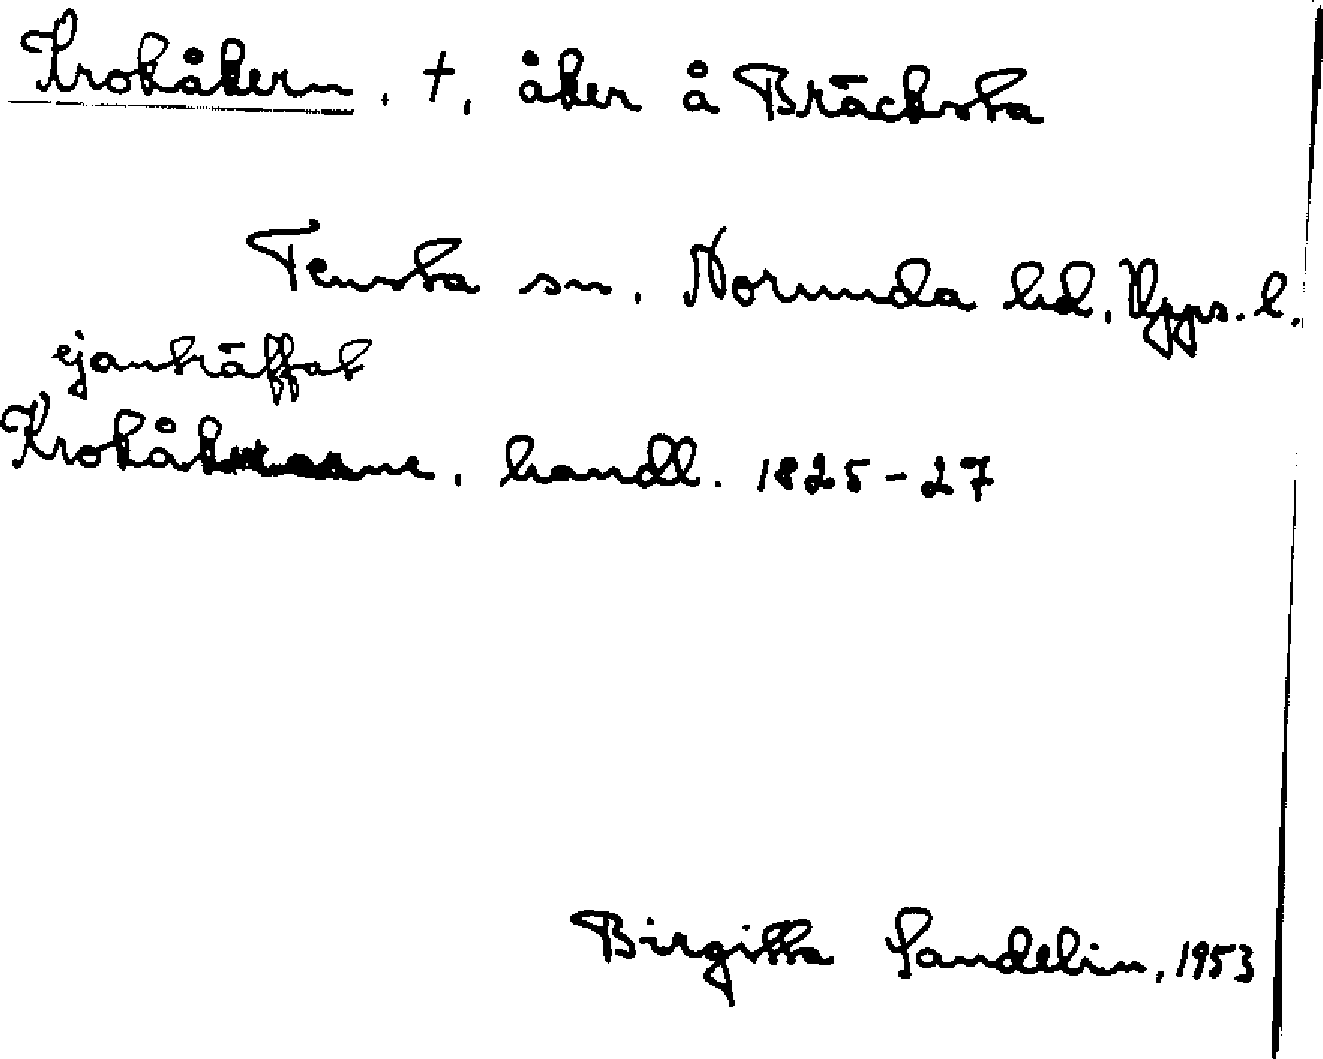 Krokåkern, †, åker å Bräcksta
Tensta sn, Norunda hd, Upps. l.
ej anträffat
handl. 1825-27
Birgitta Sandelin, 1953